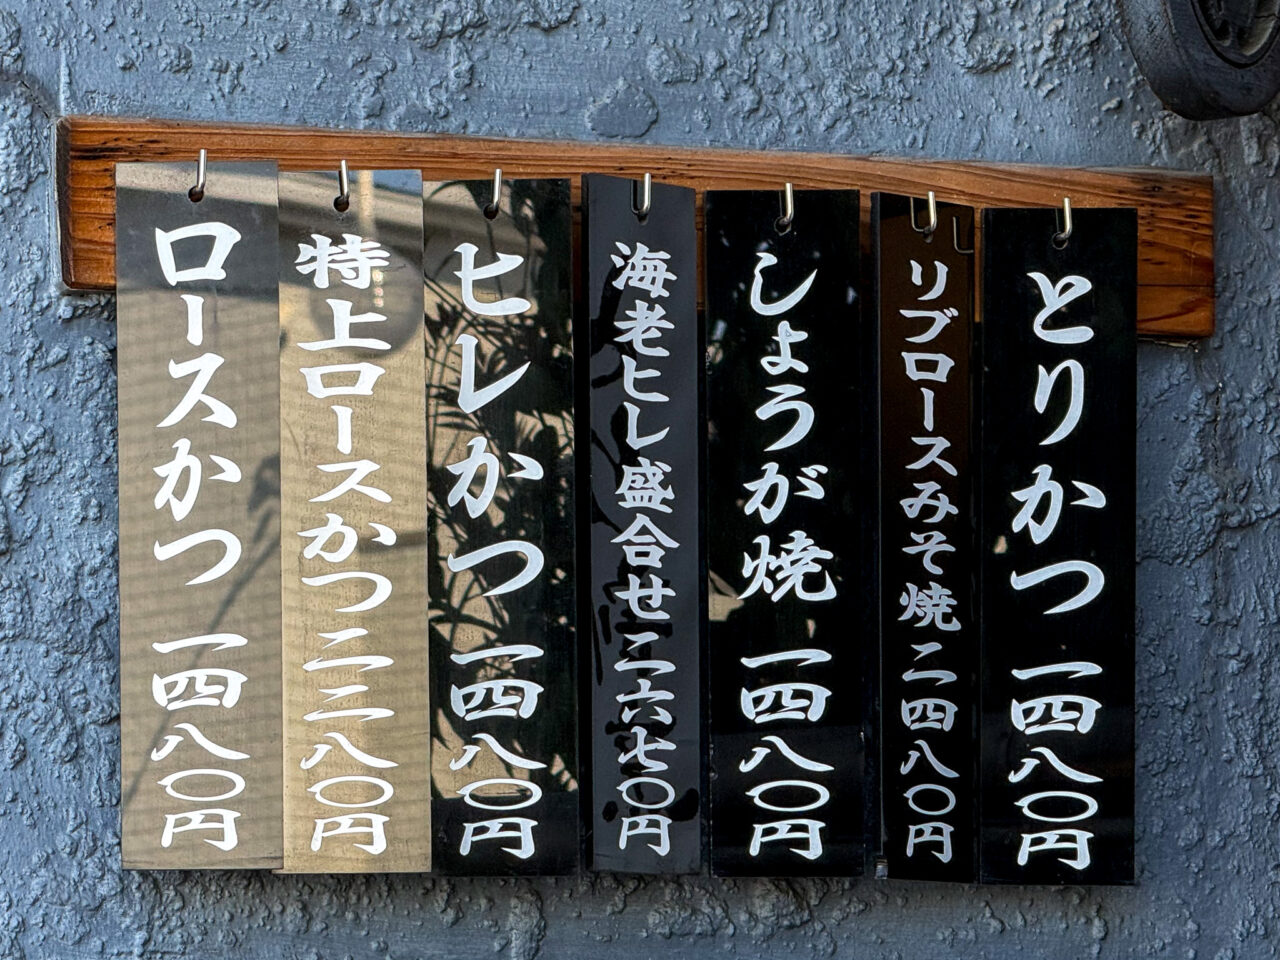 とりかつ 一四八〇円
リブロースみそ焼二四八〇円
しょうが焼 一四八〇円
海老ヒレ盛合せ二六七〇円
ヒレかつ 一四八〇円
特上ロースかつ二二八〇円
ロースかつ 一四八〇円